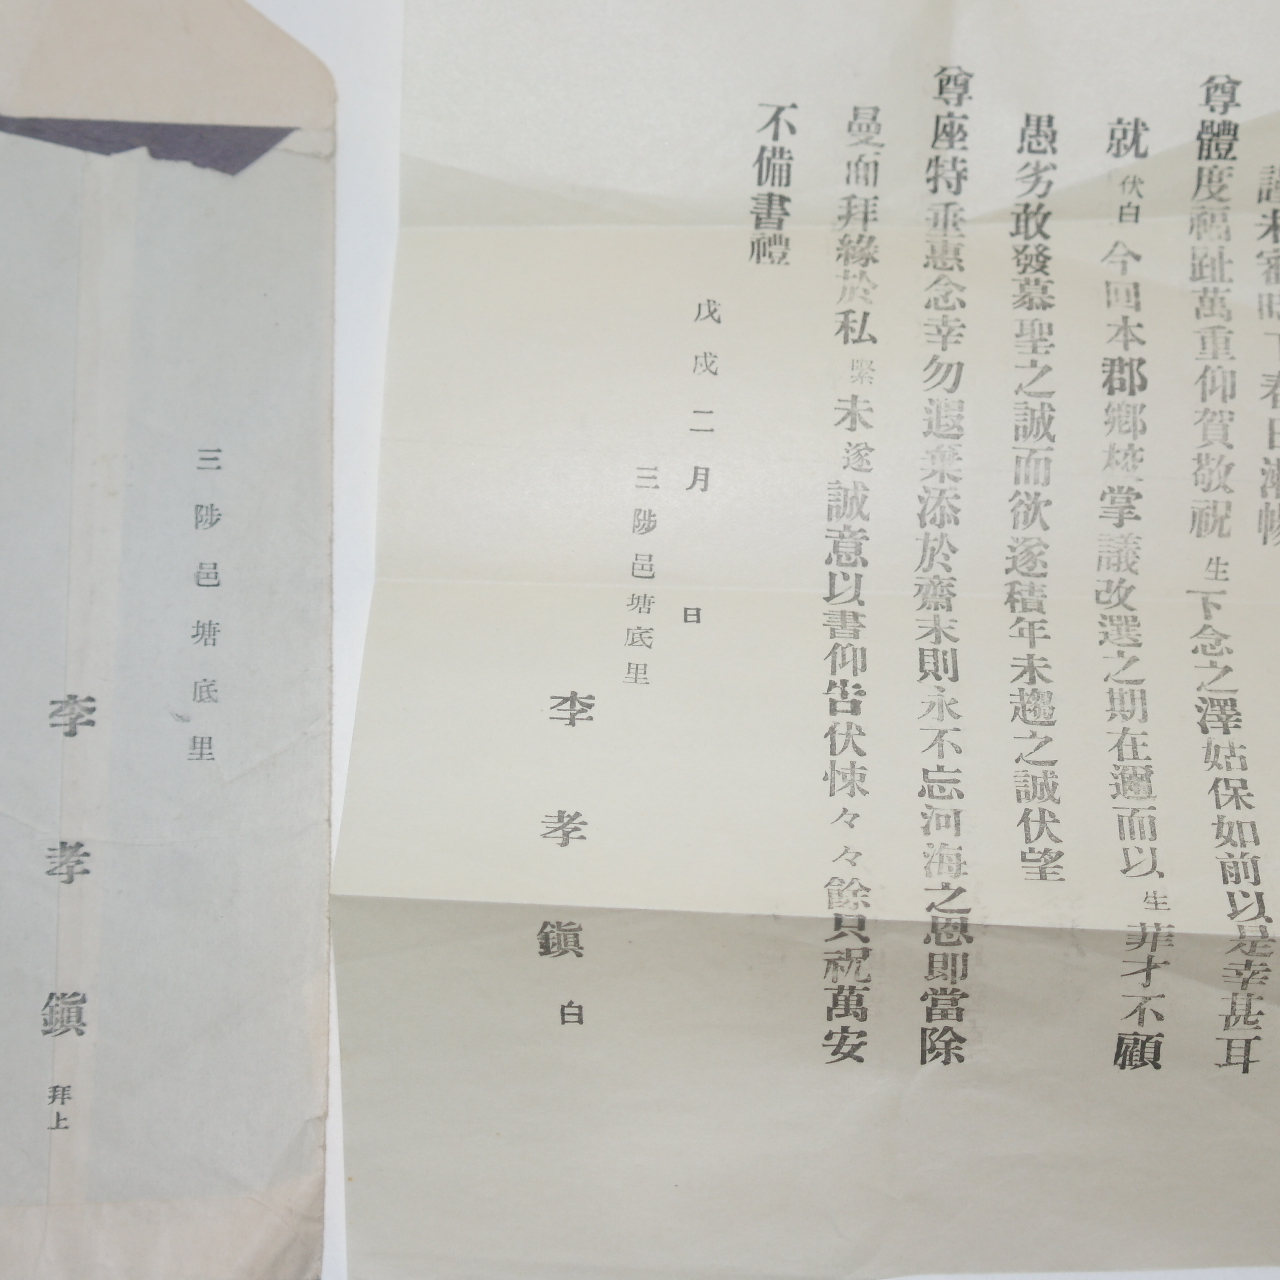 謹未審時下春日漸暢
尊體度福趾萬重仰賀敬祝生下念之澤姑保如前以是幸甚耳
就伏白今回本郡鄉校掌議改選之期在邇而以生菲才不顧
愚劣敢發慕聖之誠而欲遂積年未趨之誠伏望
尊座特垂惠念幸勿遐棄添於齋末則永不忘河海之恩即當除
曼面拜緣於私緊未遂誠意以書仰告伏悚々々餘只祝萬安
不備書禮
戊戌二月 日
三陟邑塘底里
李孝鎭白
三陟邑塘底里
李孝鎭拜上